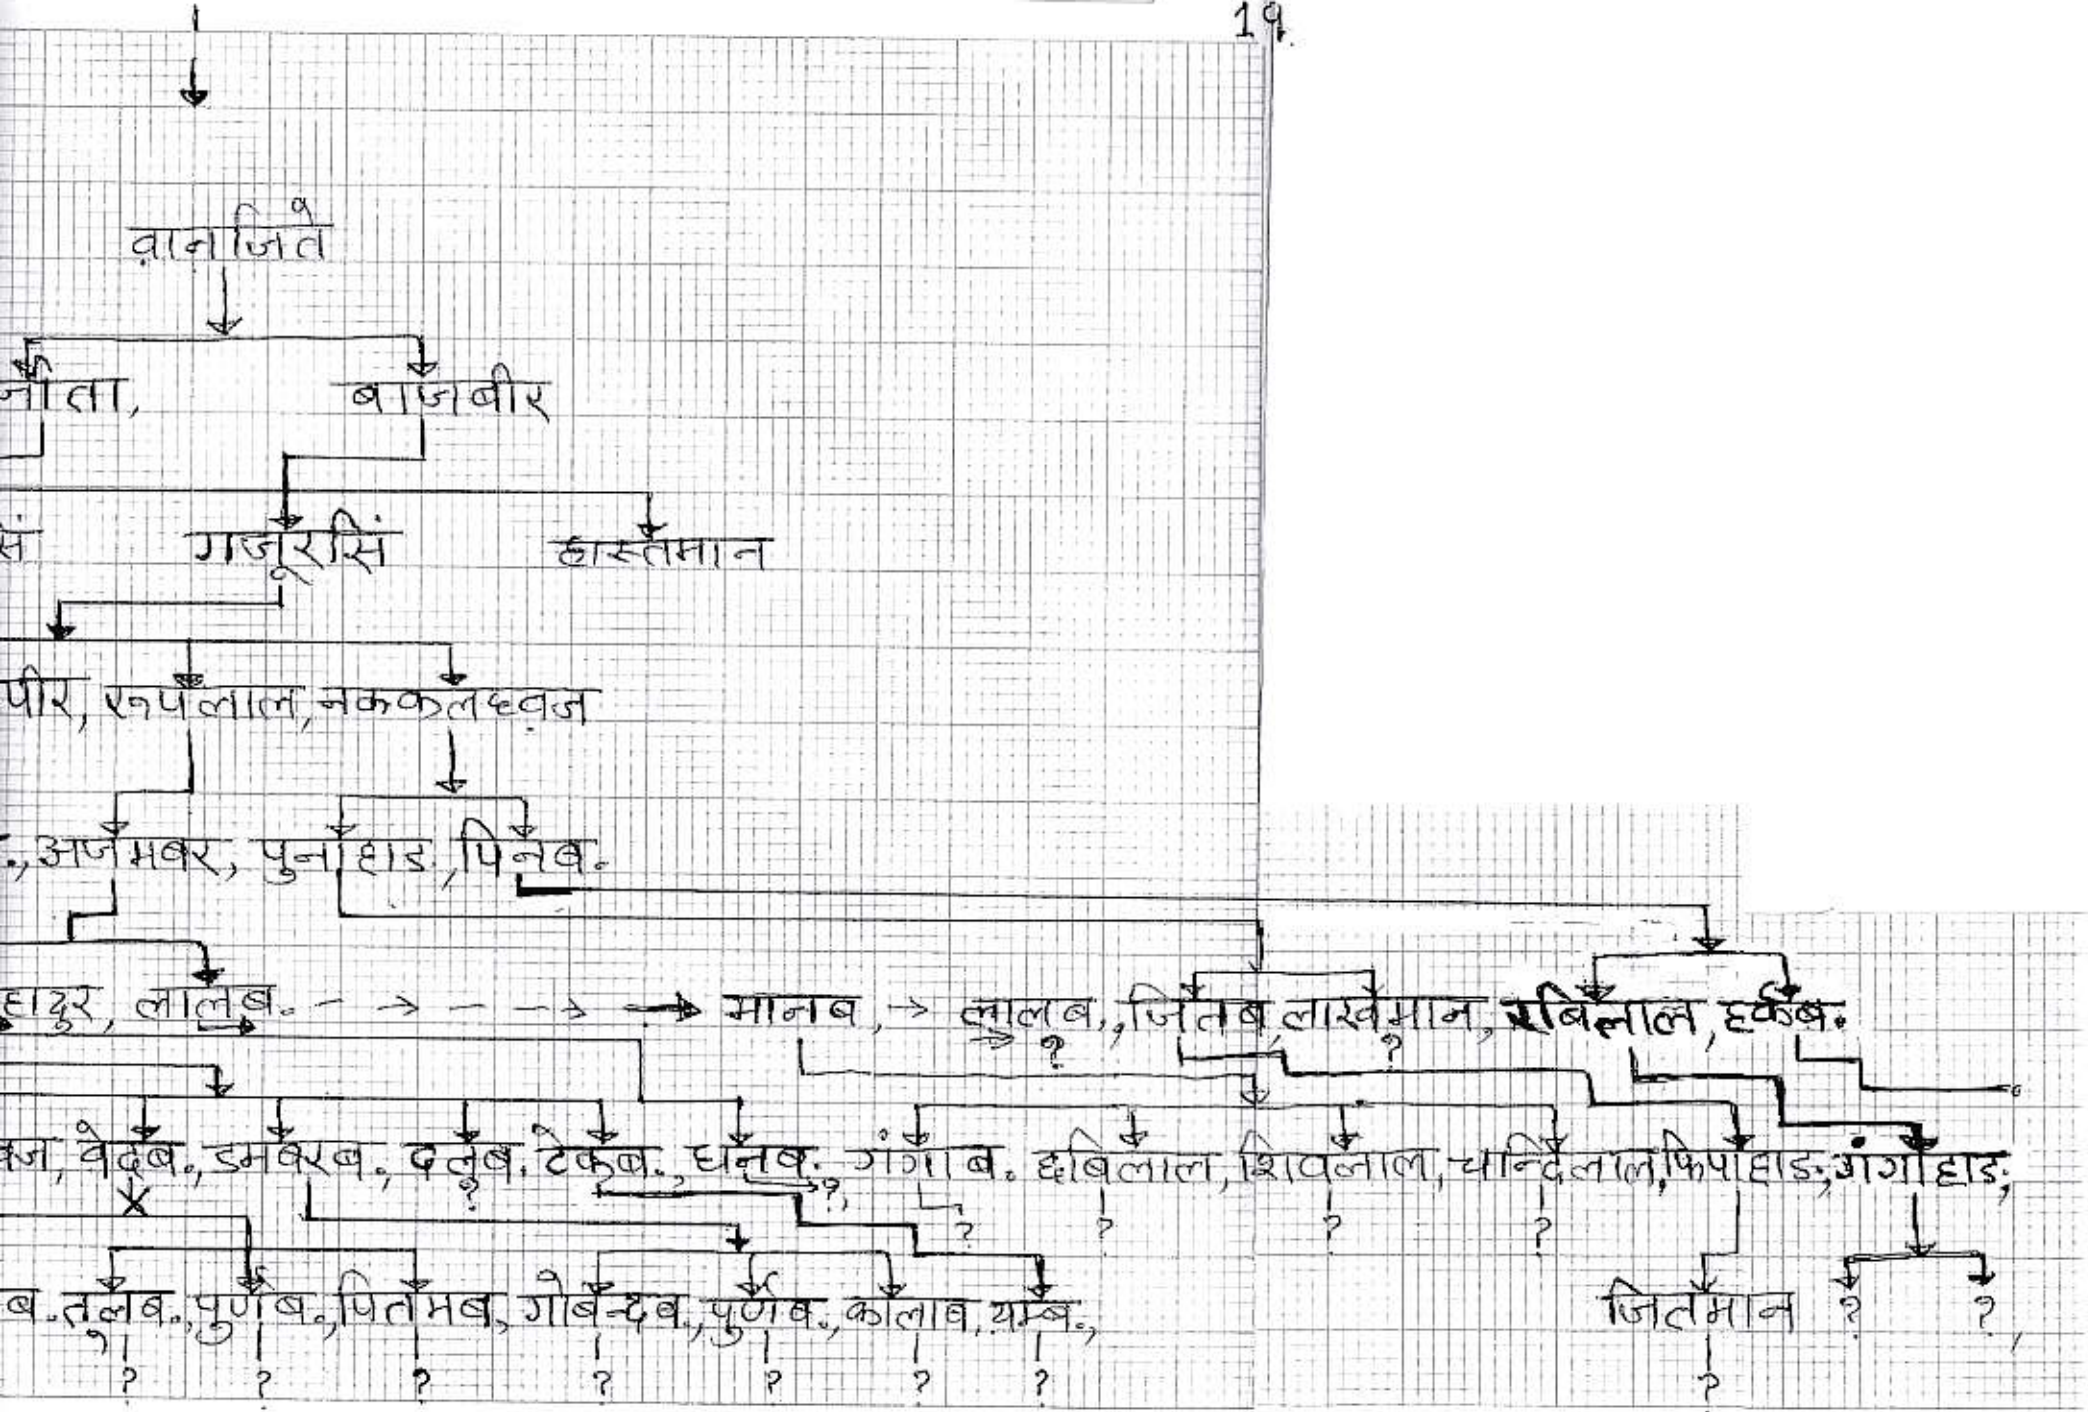 19
वानजिते
जीता, बाजबीर
सिं गजूरसिं हास्तमान
पीर, रूपलाल, नककलध्वज
., अजमबर, पुनाहाङ, पिनब.
हादुर, लालब. → → → मानब, → लालब., जितब, लाखेमान, रबिलाल, हर्कब.
? ?
वज, वेदब., डमबरब., दलुब. टेकब., धनब. गंगाब. छबिलाल, शिवलाल, चान्दिलाल, किपाहाङ, गंगाहाङ,
× ? ? ? ? ? ?
ब. तुलब., पुर्णब., पितमब, गोबन्दब., पुर्णब., कालाब, यम्ब., जितमान ? ?,
? ? ? ? ? ? ? ?